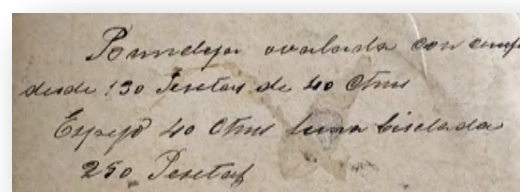 Bandeja ovalada con
desde 130 Pesetas de 40 Ctms
Espejo 40 Ctms luna biselada
250 Pesetas